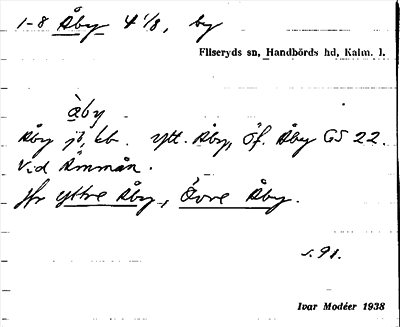 1-8 Åby 4 1/8, by
Fliseryds sn, Handbörds hd, Kalm. l.
åby
Åby jb, kb. ytt. Åby, öf. Åby GS 22.
Vid Åmmån.
Jfr Yttre Åby, Övre Åby.
s. 91.
Ivar Modéer 1938